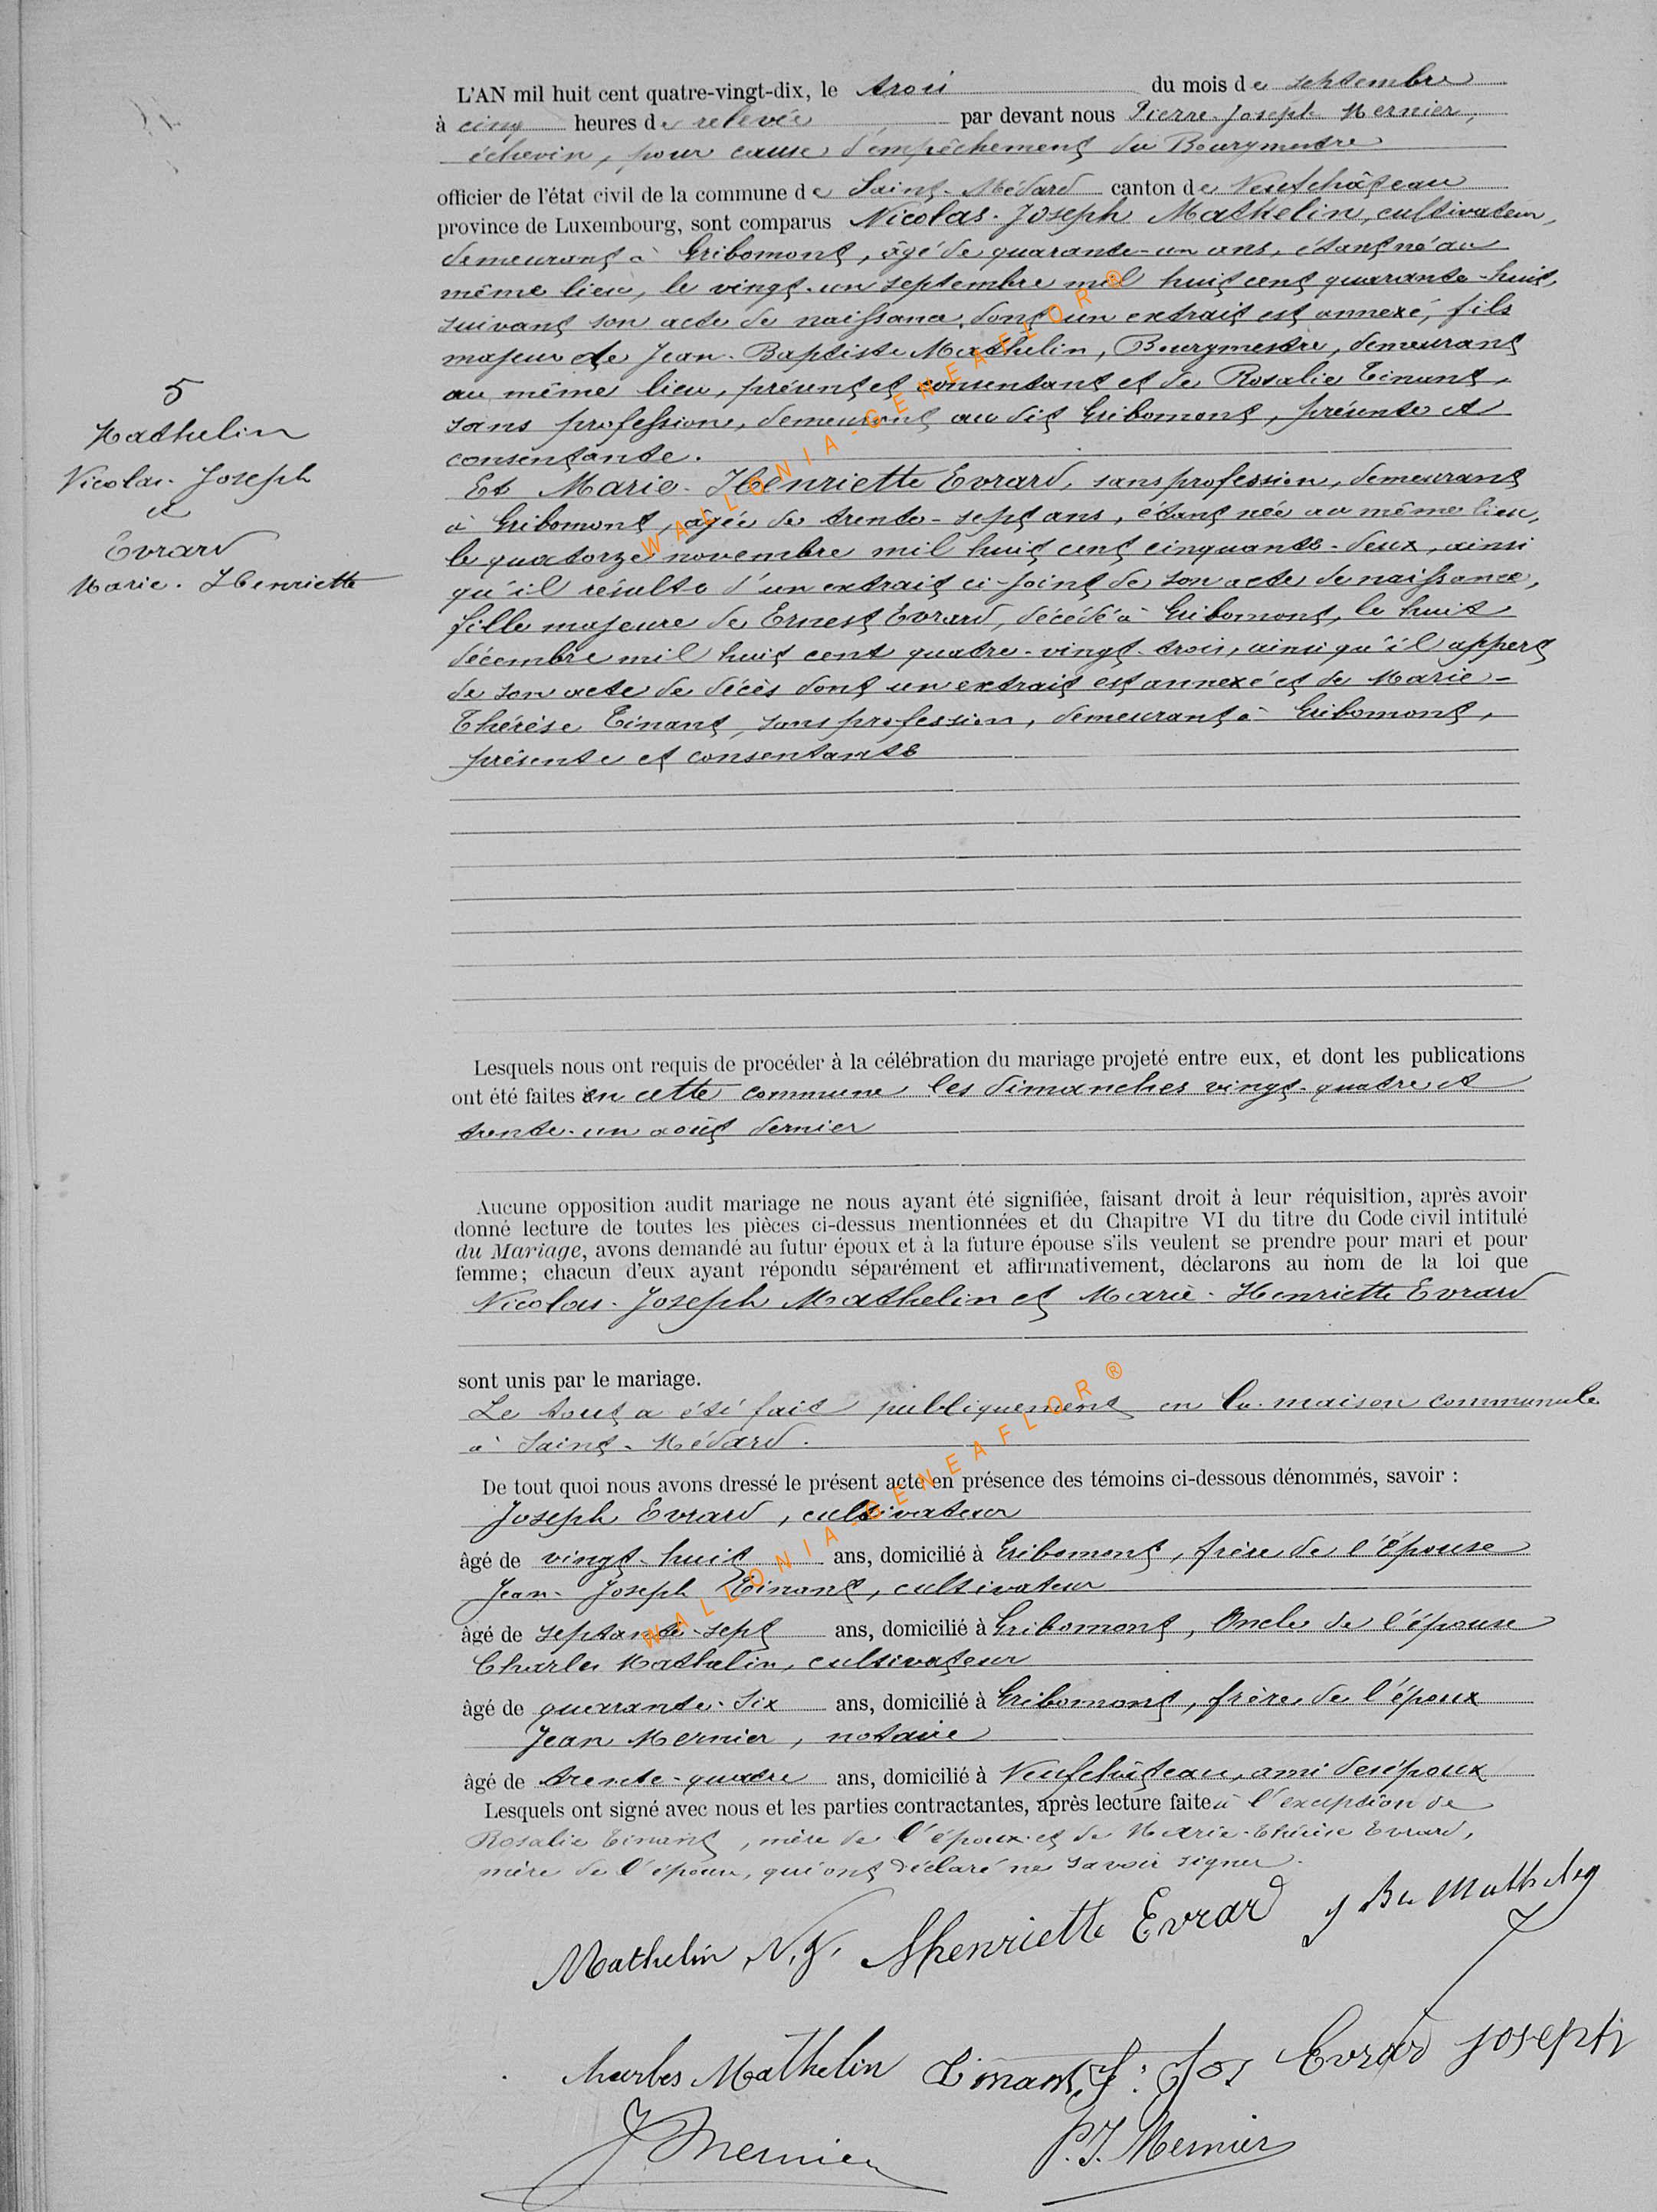 L'AN mil huit cent quatre-vingt-dix, le trois du mois de septembre
à cinq heures de relevée, par devant nous Pierre-Joseph Mernier,
échevin, pour cause d'empêchement du Bourgmestre
officier de l'état civil de la commune de Saint-Médard canton de Neufchâteau
province de Luxembourg, sont comparus Nicolas-Joseph Mathelin, cultivateur,
demeurant à Gribomont, âgé de quarante-un ans, étant né au
même lieu, le vingt-un septembre mil huit cent quarante-huit,
suivant son acte de naissance, dont un extrait est annexé, fils
majeur de Jean-Baptiste Mathelin, Bourgmestre, demeurant
au même lieu, présent et consentant et de Rosalie Tinant,
sans profession, demeurant au dit Gribomont, présente et
consentante.
Et Marie-Henriette Evrard, sans profession, demeurant
à Gribomont, âgée de trente-sept ans, étant née au même lieu,
le quatorze novembre mil huit cent cinquante-deux, ainsi
qu'il résulte d'un extrait ci-joint de son acte de naissance,
fille majeure de Ernest Evrard, décédé à Gribomont, le huit
décembre mil huit cent quatre-vingt-trois, ainsi qu'il appert
de son acte de décès dont un extrait est annexé et de Marie-
Thérèse Tinant, sans profession, demeurant à Gribomont,
présente et consentante
5
Mathelin
Nicolas-Joseph
et
Evrard
Marie-Henriette
Lesquels nous ont requis de procéder à la célébration du mariage projeté entre eux, et dont les publications
ont été faites en cette commune les dimanches vingt-quatre et
trente-un août dernier
Aucune opposition audit mariage ne nous ayant été signifiée, faisant droit à leur réquisition, après avoir
donné lecture de toutes les pièces ci-dessus mentionnées et du Chapitre VI du titre du Code civil intitulé
du Mariage, avons demandé au futur époux et à la future épouse s'ils veulent se prendre pour mari et pour
femme; chacun d'eux ayant répondu séparément et affirmativement, déclarons au nom de la loi que
Nicolas-Joseph Mathelin et Marie-Henriette Evrard
sont unis par le mariage.
Le tout a été fait publiquement en la maison communale
à Saint-Médard.
De tout quoi nous avons dressé le présent acte en présence des témoins ci-dessous dénommés, savoir :
Joseph Evrard, cultivateur
âgé de vingt-huit ans, domicilié à Gribomont, frère de l'épouse
Jean-Joseph Tinant, cultivateur
âgé de septante-sept ans, domicilié à Gribomont, Oncle de l'épouse
Charles Mathelin, cultivateur
âgé de quarante-six ans, domicilié à Gribomont, frère de l'époux
Jean Mernier, notaire
âgé de trente-quatre ans, domicilié à Neufchâteau, ami des époux
Lesquels ont signé avec nous et les parties contractantes, après lecture faite à l'exception de
Rosalie Tinant, mère de l'époux et de Marie-Thérèse Evrard,
mère de l'épouse, qui ont déclaré ne savoir signer.
Mathelin N.J. Mhenriette Evrard J Bte Mathelin
Charles Mathelin Tinant J: Jos Evrard Joseph
J Mernier P.J. Mernier
WALLONIA-GENEAFLOR®
WALLONIA-GENEAFLOR®